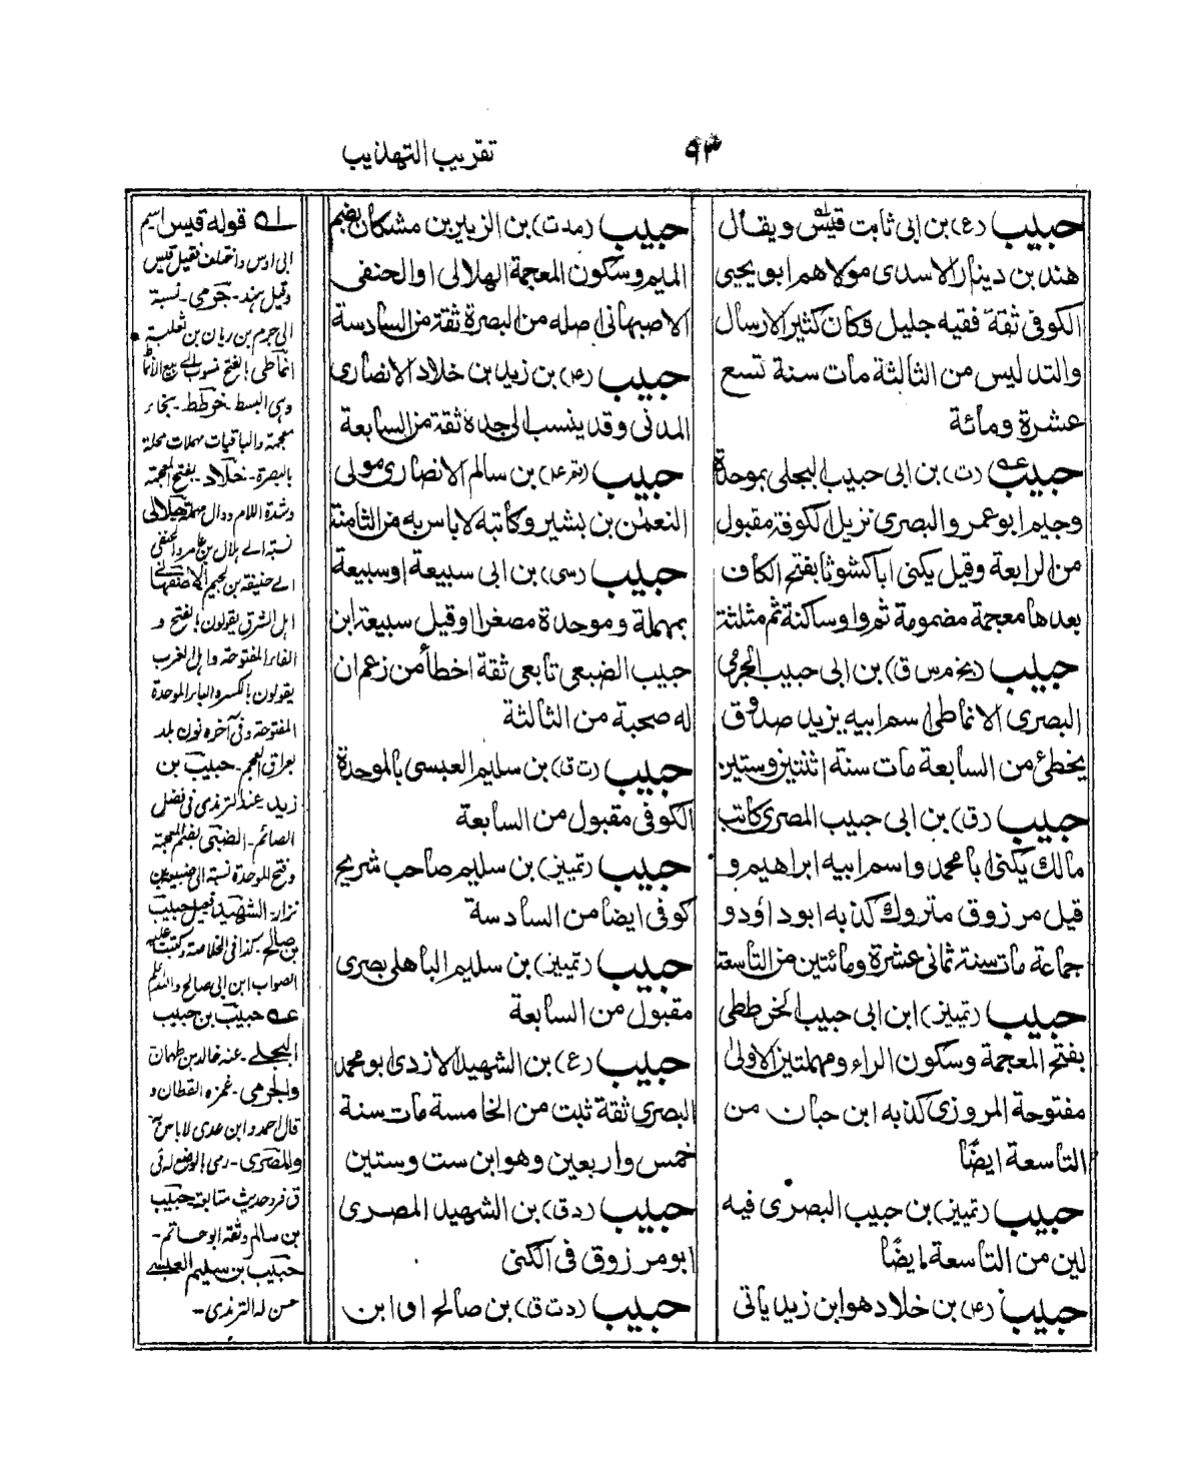 ۹۳
تقريب التهذيب
حبيب (ع) بن ابى ثابت قيس ويقال
هند بن دينار الاسدى مولاهم ابو يحيى
الكوفى ثقة فقيه جليل وكان كثير الارسال
والتدليس من الثالثة مات سنة تسع
عشرة ومائة
حبيب (ت) بن ابى حبيب البجلى بموحدة
وجيم ابو عمر والبصرى نزيل الكوفة مقبول
من الرابعة وقيل يكنى اباكشوثا بفتح الكاف
بعدها معجمة مضمومة ثم واو ساكنة ثم مثلثة
حبيب (بخ م س ق) بن ابى حبيب الجرمى
البصرى الانماطى اسم ابيه يزيد صدوق
يخطئ من السابعة مات سنة اثنتين وستين
حبيب (ق) بن ابى حبيب المصرى كاتب
مالك يكنى ابا محمد واسم ابيه ابراهيم و
قيل مرزوق متروك كذبه ابو داؤد و
جماعة مات سنة ثمانى عشرة ومائتين من التاسعة
حبيب (تمييز) ابن ابى حبيب الخرططى
بفتح المعجمة وسكون الراء ومهملتين الاولى
مفتوحة المروزى كذبه ابن حبان من
التاسعة ايضًا
حبيب (تمييز) بن حبيب البصرى فيه
لين من التاسعة ايضًا
حبيب (ع) بن خلاد هو ابن زيد ياتى
حبيب (مدت) بن الزبير بن مشكان بضم
الميم وسكون المعجمة الهلالى او الحنفى
الاصبهانى اصله من البصرة ثقة من السادسة
حبيب (ع) بن زيد بن خلاد الانصارى
المدنى وقد ينسب الى جده ثقة من السابعة
حبيب بن سالم الانصارى مولى
النعمٰن بن بشير وكاتبه لاباس به من الثامنة
حبيب (سى) بن ابى سبيعة او سبيعة
بمهملة وموحدة مصغرا وقيل سبيعة ابن
حبيب الضبعى تابعى ثقة اخطأ من زعم ان
له صحبة من الثالثة
حبيب (ت ق) بن سليم العبسى بالموحدة
الكوفى مقبول من السابعة
حبيب (تمييز) بن سليم صاحب شريح
كوفى ايضا من السادسة
حبيب (تمييز) بن سليم الباهلى بصرى
مقبول من السابعة
حبيب (ع) بن الشهيد الازدى ابو محمد
البصرى ثقة ثبت من الخامسة مات سنة
خمس واربعين وهو ابن ست وستين
حبيب (د ق) بن الشهيد المصرى
ابو مرزوق فى الكنى
حبيب (د ت ق) بن صالح او ابن
له قوله قيس اسم
ابى اختلف فقيل قيس
وقيل هند - جرمى - نسبة
الى جرم بن ربان بن ثعلبة
انماطى بالفتح نسبة الى بيع الانماط
وهى البسط خرطط - بخاء
معجمة والباقيات مهملات محلة
بالبصرة - خلاد - بفتح المعجمة
وشدة اللام ودال مهملة هلالى
نسبة الى هلال بن عامر والحنفى
الى حنيفة بن لجيم الاصفهانى
اهل الشرق يقولون بالفتح و
الفاء المفتوحة واهل الغرب
يقولون بالكسر والباء الموحدة
المفتوحة وفى آخره نون بلد
بعراق العجم - حبيب بن
زيد عند الترمذى فى فضل
الصائم - الضبعى بضم المعجمة
وفتح الموحدة نسبة الى ضبيعة بن
نزار الشهيد قيل حبيب
بن صالح - كذا فى الخلاصة وكتبت عليه
الصواب ابن ابى صالح والله اعلم
عه حبيب بن حبيب
البجلى - عنه خالد بن طهمان
والجرمى - غمزه القطان و
قال احمد وابن عدى لا باس به
والمصرى - رمى بالوضع له فى
ق فرد حديث متابعة حبيب
بن سالم وثقه ابو حاتم -
حبيب بن سليم العبسى
حسن له الترمذى -